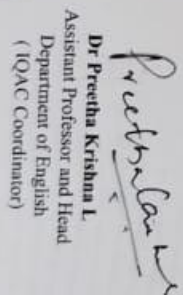 Dr Preetha Krishna L
Assistant Professor and Head
Department of English
( IQAC Coordinator)